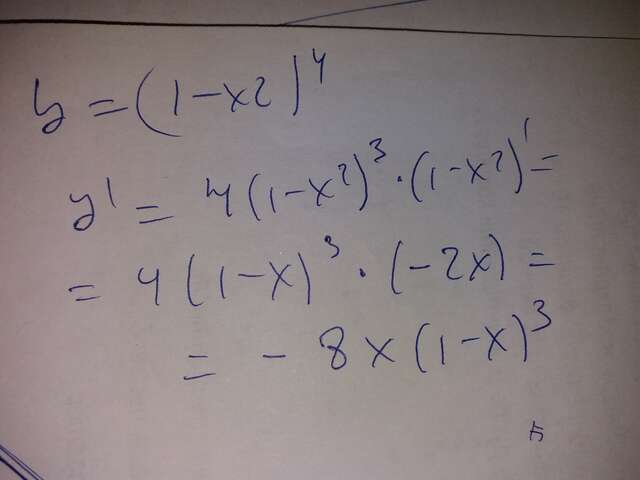 y = (1-x²)⁴
y' = 4(1-x²)³·(1-x²)' =
= 4(1-x)³·(-2x) =
= -8x(1-x)³